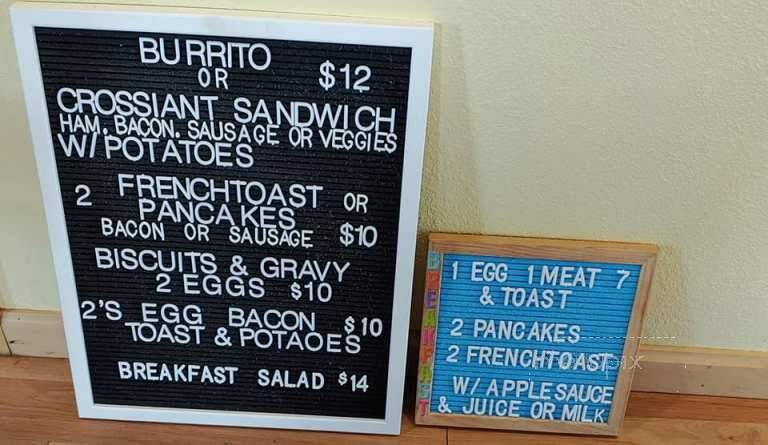 BURRITO
OR $12
CROSSIANT SANDWICH
HAM. BACON. SAUSAGE OR VEGGIES
W/POTATOES
2 FRENCHTOAST OR
PANCAKES
BACON OR SAUSAGE $10
BISCUITS & GRAVY
2 EGGS $10
2'S EGG BACON $10
TOAST & POTAOES
BREAKFAST SALAD $14
BREAKFAST
1 EGG 1 MEAT 7
& TOAST
2 PANCAKES
2 FRENCHTOAST
W/ APPLESAUCE
& JUICE OR MILK